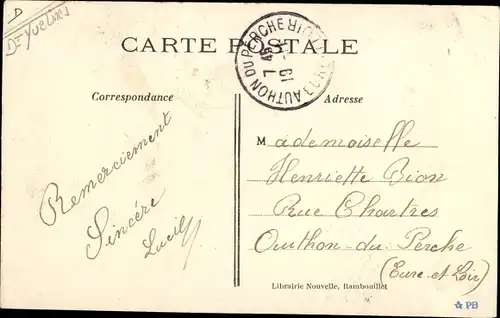 D
Dt Yvelines
CARTE POSTALE
AUTHON DU PERCHE EURE-ET-LOIR
7 45
19
Correspondance
Adresse
Remerciement
Sincère
Lucily
Mademoiselle
Henriette Bion
Rue Chartres
Outhon-du-Perche
(Eure-et-Loir)
Librairie Nouvelle, Rambouillet
PB